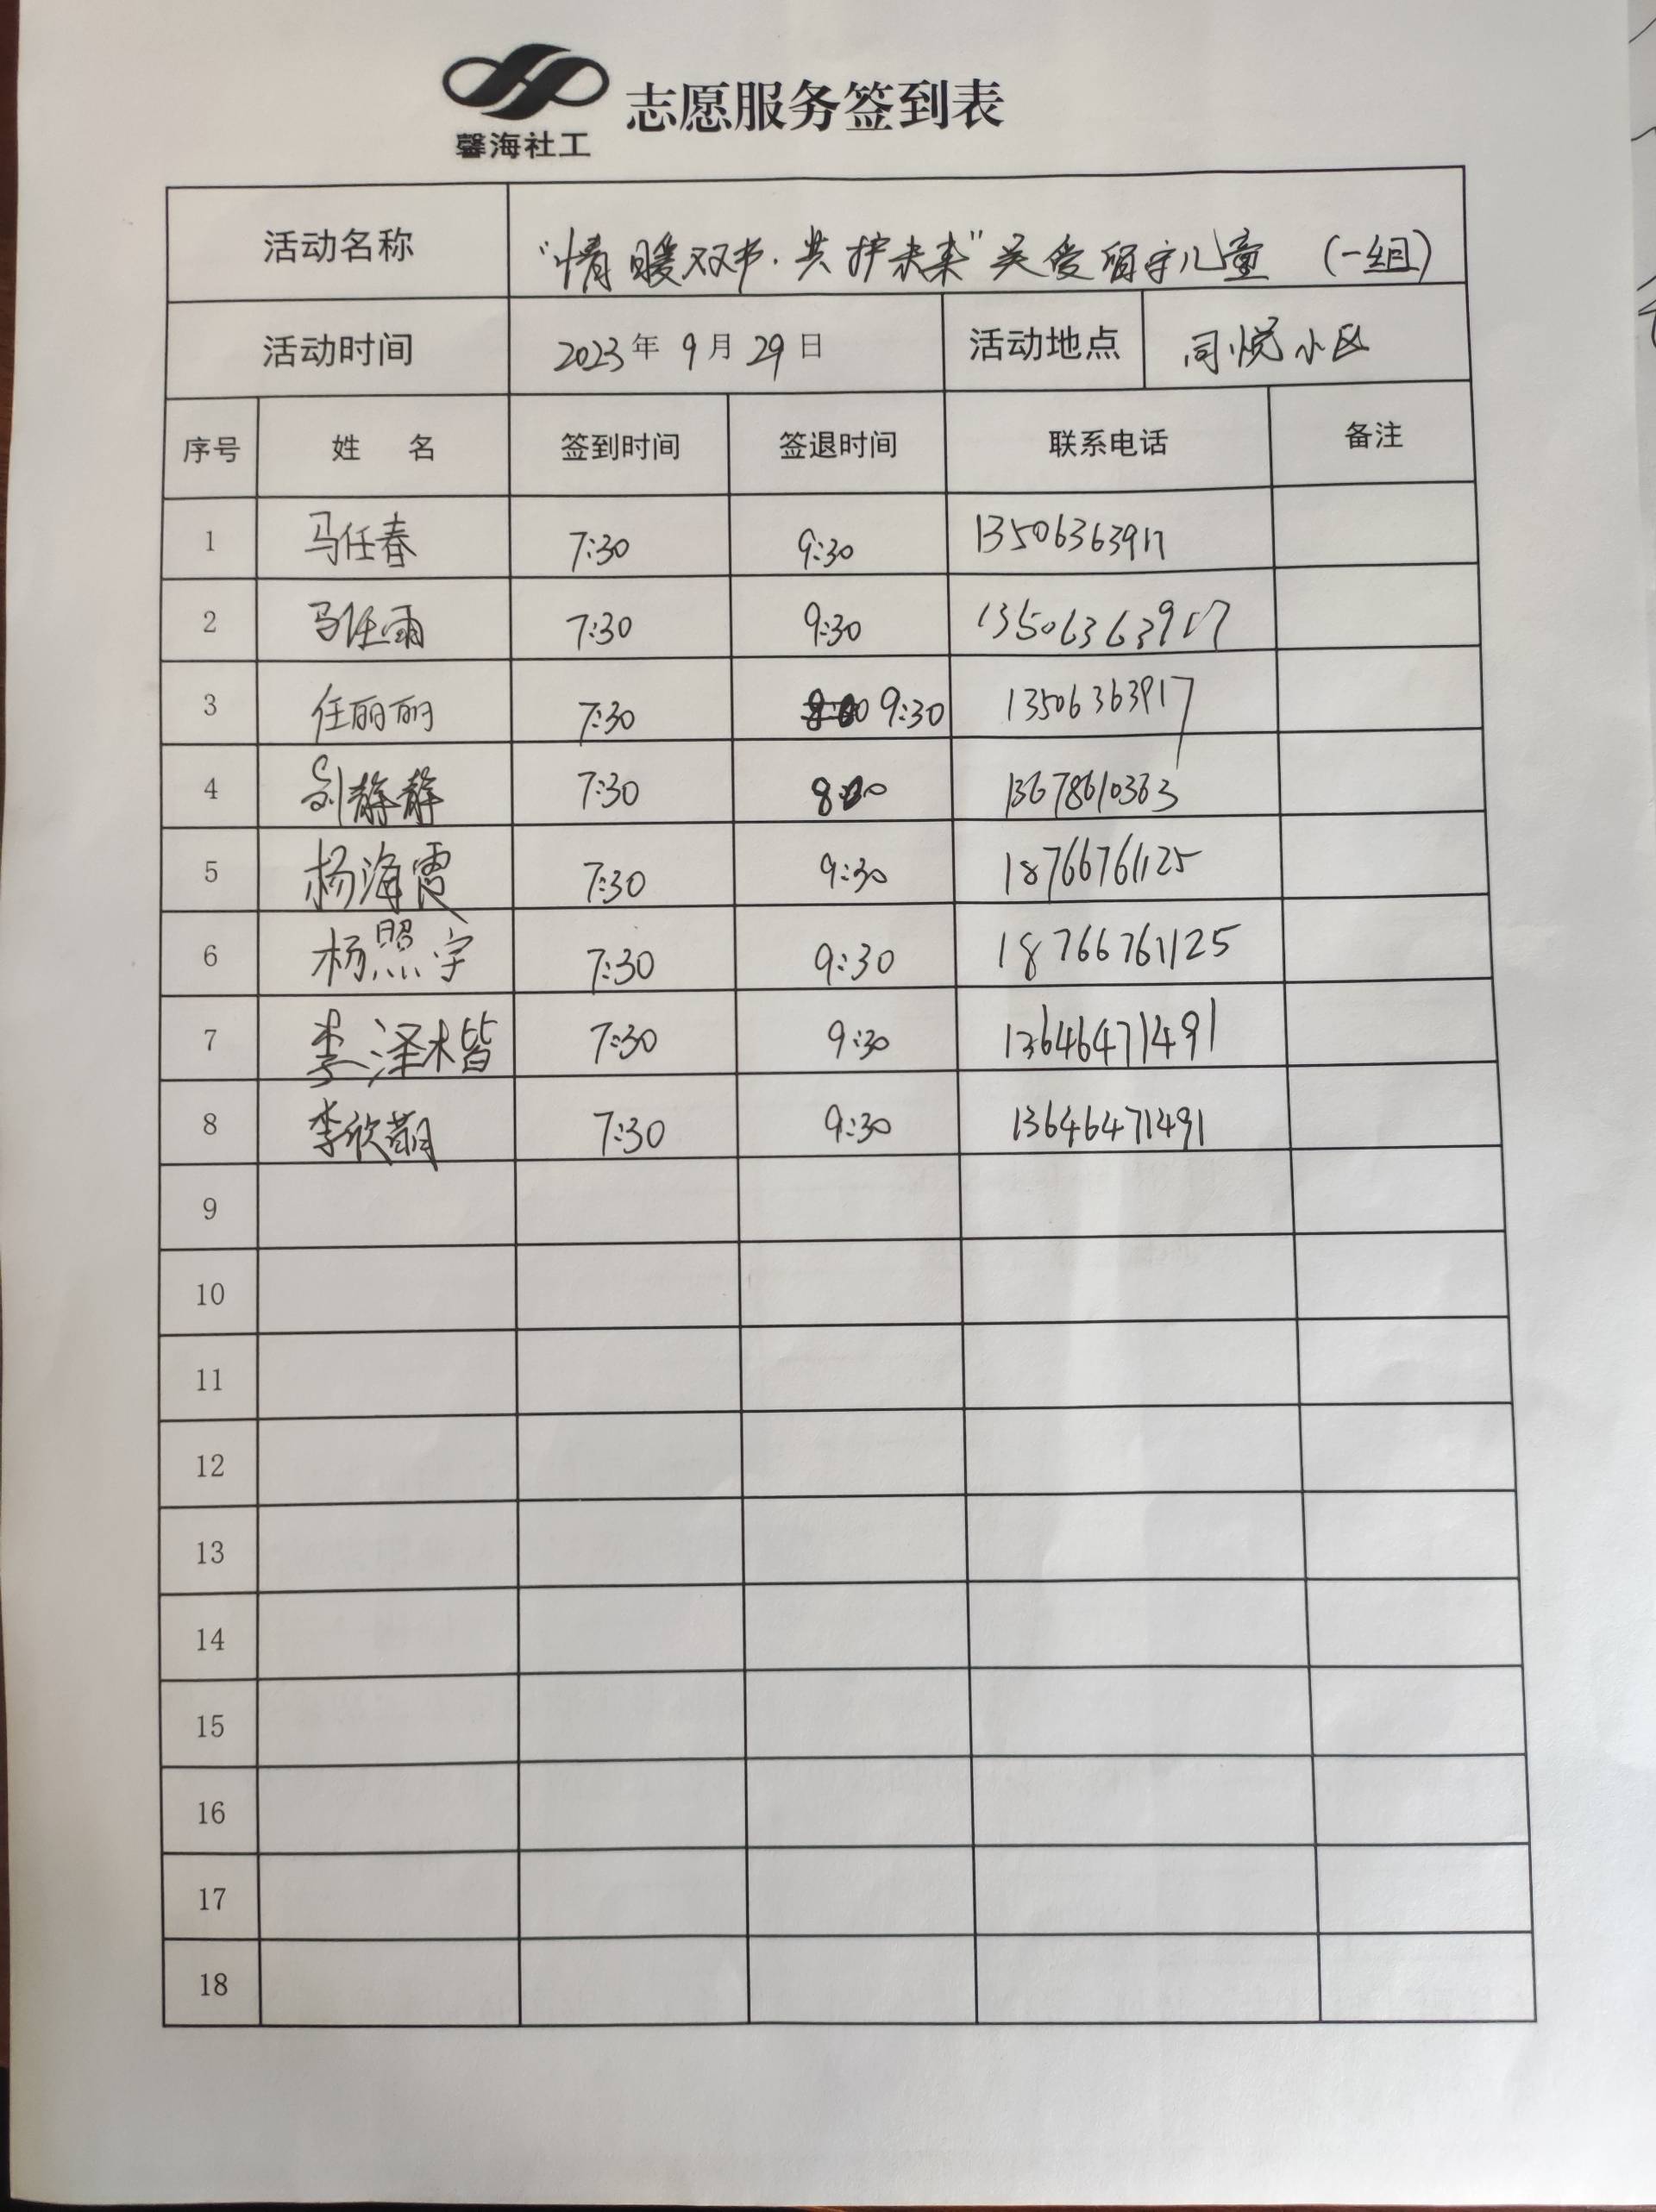 馨海社工 志愿服务签到表
活动名称 “情暖双节·共护未来”关爱留守儿童 (一组)
活动时间 2023年 9月 29日 活动地点 同悦小区
序号 姓 名 签到时间 签退时间 联系电话 备注
1 马任春 7:30 9:30 13506363917
2 马任雨 7:30 9:30 13506363917
3 任丽丽 7:30 9:30 13506363917
4 刘静静 7:30 13678610363
5 杨海霞 7:30 9:30 18766761125
6 杨照宇 7:30 9:30 18766761125
7 李泽楷 7:30 9:30 13646471491
8 李欣萌 7:30 9:30 13646471491
9
10
11
12
13
14
15
16
17
18